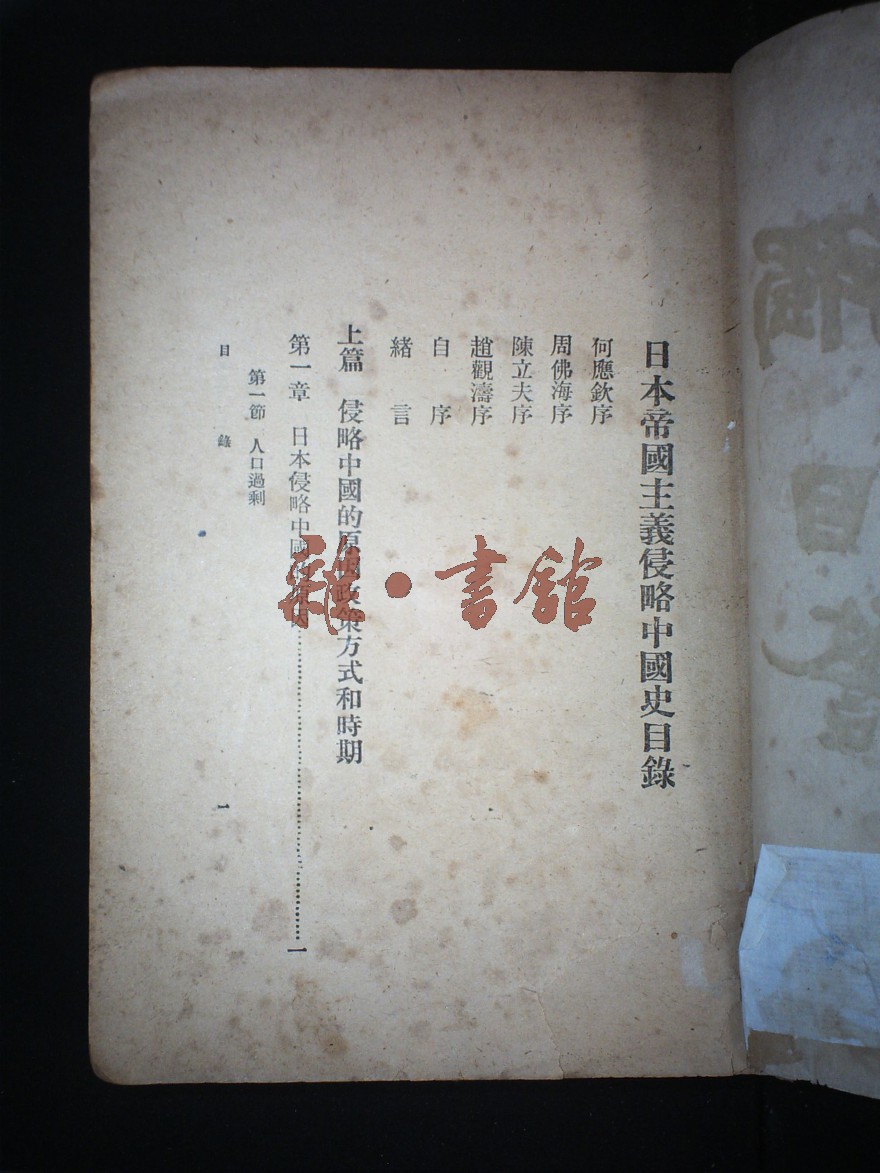 日本帝國主義侵略中國史目錄
何應欽序
周佛海序
陳立夫序
趙觀濤序
自序
緒言
上篇 侵略中國的原因政策方式和時期
第一章 日本侵略中國的原因……………………一
第一節 人口過剩
目錄
一
雜·書館